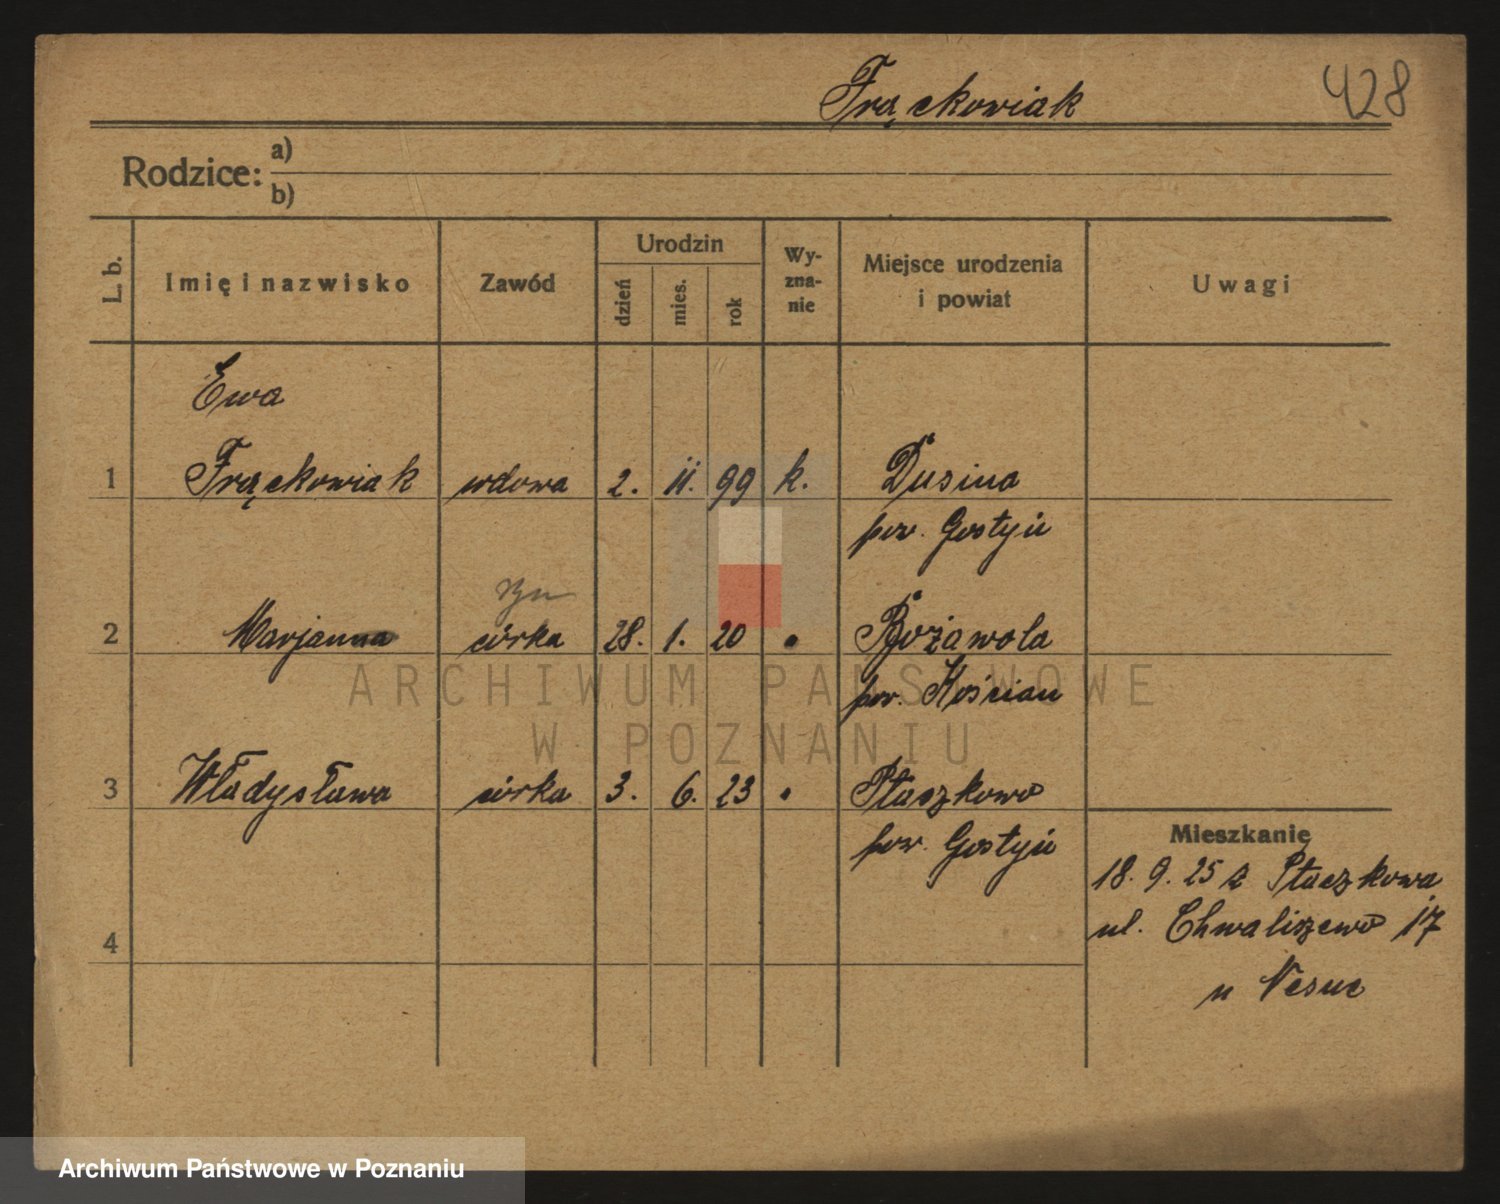 Frąckowiak
428
Rodzice: a)
b)
L. b.
Imię i nazwisko
Zawód
Urodzin
dzień
mies.
rok
Wy-
zna-
nie
Miejsce urodzenia
i powiat
Uwagi
Ewa
1 Frąckowiak wdowa 2. 11. 99 k. Dusina
pow. Gostyń
syn
2 Marjanna córka 28. 1. 20 " Bożawola
pow. Kościan
ARCHIWUM PAŃSTWOWE
W POZNANIU
3 Władysława córka 3. 6. 23 " Ptaszkowo
pow. Gostyń
Mieszkanie
18. 9. 25 z Ptaszkowa
ul. Chwaliszewo 17
4
u
Archiwum Państwowe w Poznaniu